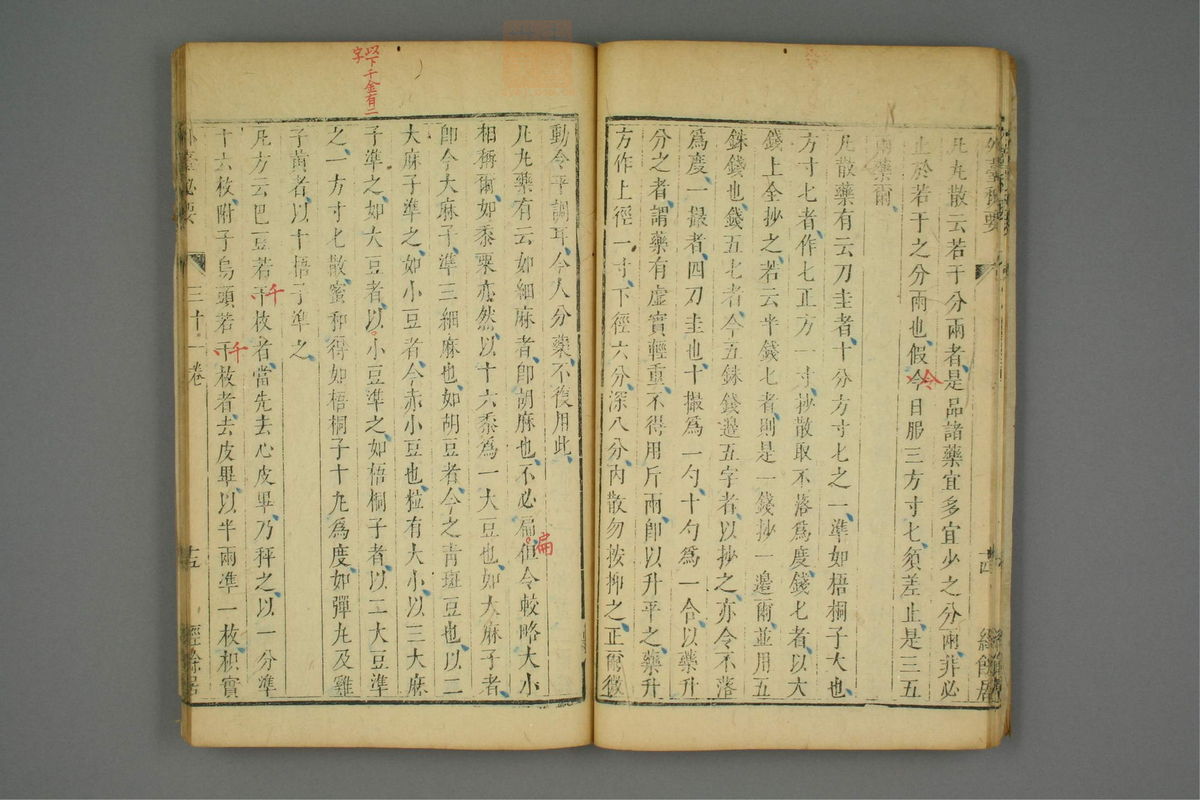 凡丸散云若干分兩者是品諸藥宜多宜少之分兩非必
止於若干之分兩也假令日服三方寸匕須差止是三五
兩藥爾
凡散藥有云刀圭者十分方寸匕之一準如梧桐子大也
方寸匕者作匕正方一寸抄散取不落為度錢匕者以大
錢上全抄之若云半錢匕者則是一錢抄一邊爾並用五
銖錢也錢五匕者今五銖錢邊五字者以抄之亦令不落
為度一撮者四刀圭也十撮為一勺十勺為一合以藥升
分之者謂藥有虛實輕重不得用斤兩即以升平之藥升
方作上徑一寸下徑六分深八分內散勿按抑之正爾微
外臺秘要
十四
經餘居
動令平調耳今人分藥不復用此
凡丸藥有云如細麻者即胡麻也不必扁但令較略大小
扁
相稱爾如黍粟亦然以十六黍為一大豆也如大麻子者
即今大麻子準三細麻也如胡豆者今之青斑豆也以二
大麻子準之如小豆者今赤小豆也粒有大小以三大麻
子準之如大豆者以小豆準之如梧桐子者以二大豆準
以下千金有二字
之一方寸匕散蜜和得如梧桐子十丸為度如彈丸及雞
子黃者以十梧子準之
凡方云巴豆若干枚者當先去心皮畢乃秤之以一分準
千
十六枚附子烏頭若干枚者去皮畢以半兩準一枚枳實
千
外臺秘要
三十一卷
十五
經餘居